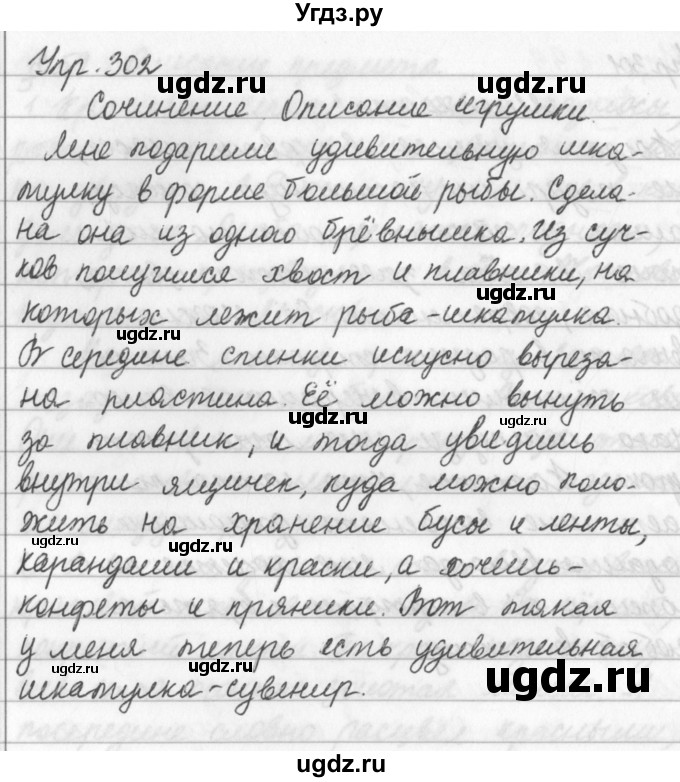 Угдз.ру
Упр. 302
ugdz.ru
ugdz.ru
Сочинение. Описание игрушки.
Мне подарили удивительную шка-
ugdz.ru
ugdz.ru
тулку в форме большой рыбы. Сдела-
на она из одного брёвнышка. Из суч-
ков получился хвост и плавники, на
ugdz.ru
которых лежит рыба-шкатулка.
ugdz.ru
В середине спинки искусно выреза-
на пластина. Её можно вынуть
ugdz.ru
ugdz.ru
за плавник, и тогда увидишь
внутри ящичек, куда можно поло-
жить на хранение бусы и ленты,
ugdz.ru
ugdz.ru
карандаши и краски, а хочешь-
конфеты и пряники. Вот такая
у меня теперь есть удивительная
ugdz.ru
ugdz.ru
шкатулка-сувенир.
ugdz.ru